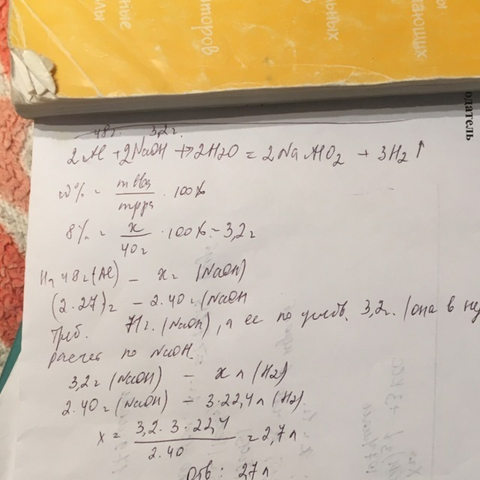 ные
лы
аторов
льных
ающих
одатель
48г. 3,2г.
2Al + 2NaOH + 2H2O = 2NaAlO2 + 3H2↑
ω% = mвва / mрра · 100%
8% = x / 40г · 100% = 3,2г
На 48г (Al) – xг (NaOH)
(2·27)г – 2·40г (NaOH
Треб. 71г. (NaOH), а ее по условь. 3,2г. (она в не
расчет по NaOH.
3,2г (NaOH) – x л (H2)
2·40г (NaOH) – 3·22,4л (H2)
x = 3,2·3·22,4 / 2·40 = 2,7л
Отв: 2,7л